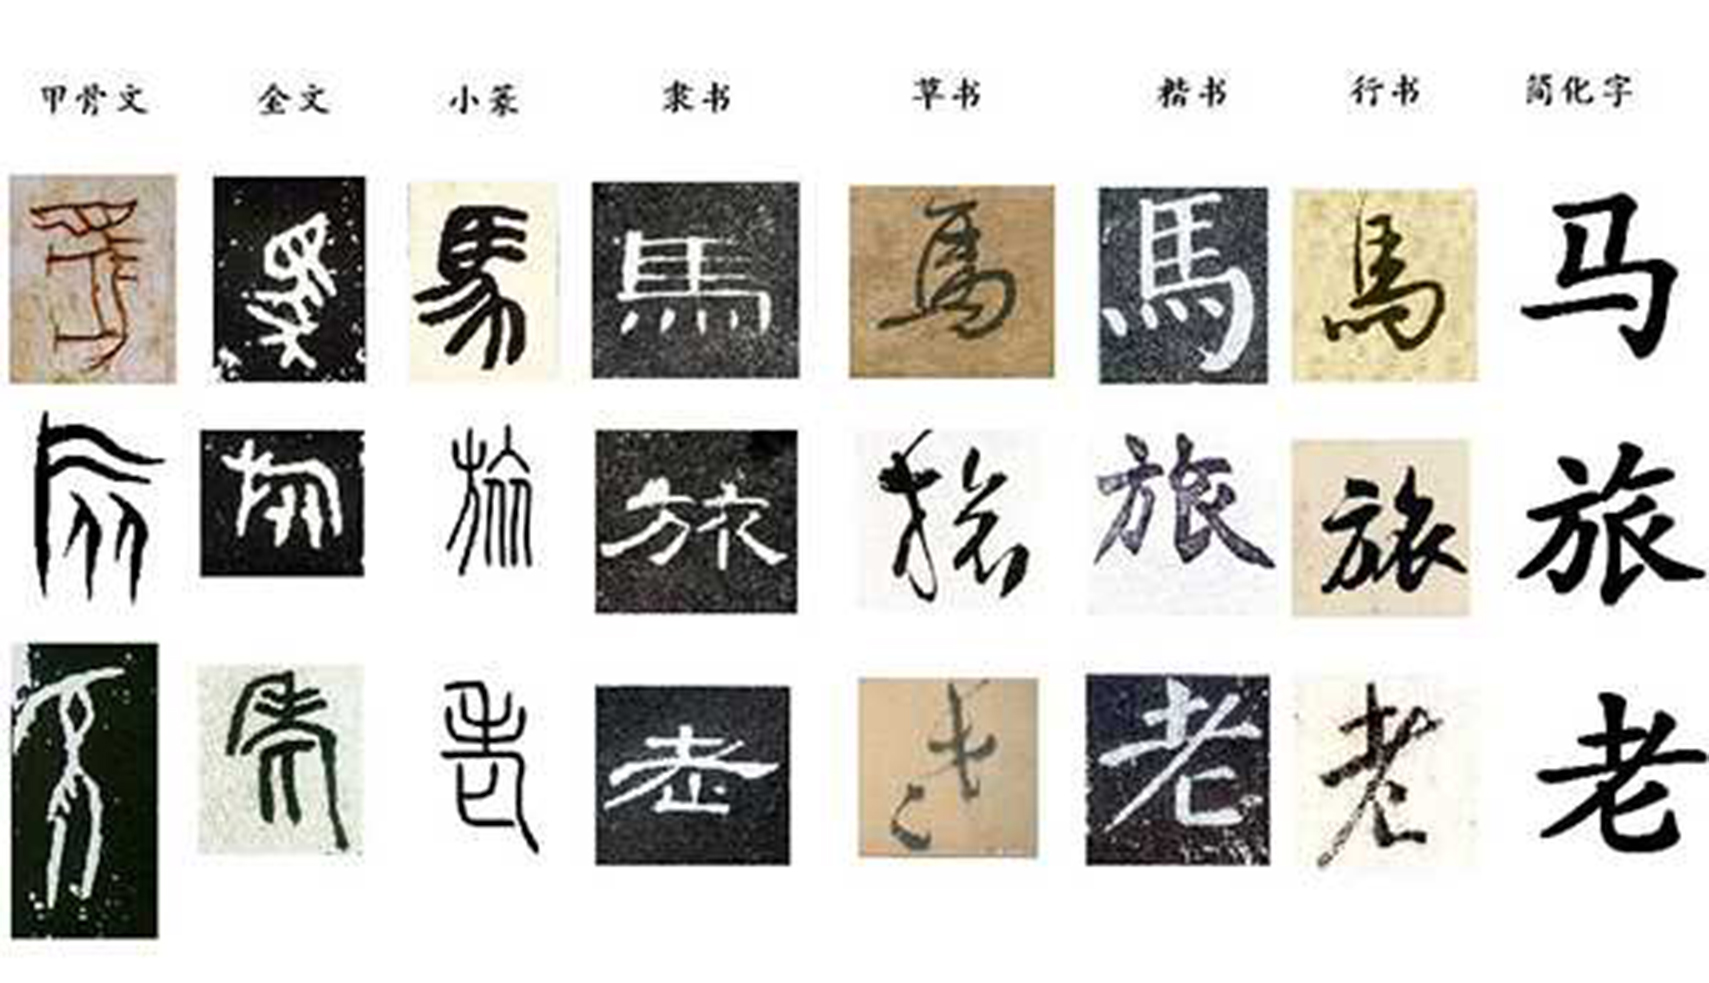 甲骨文 金文 小篆 隶书 草书 楷书 行书 简化字
馬 馬 馬 馬 馬 馬 馬 马
旅 旅 旅 旅 旅 旅 旅 旅
老 老 老 老 老 老 老 老